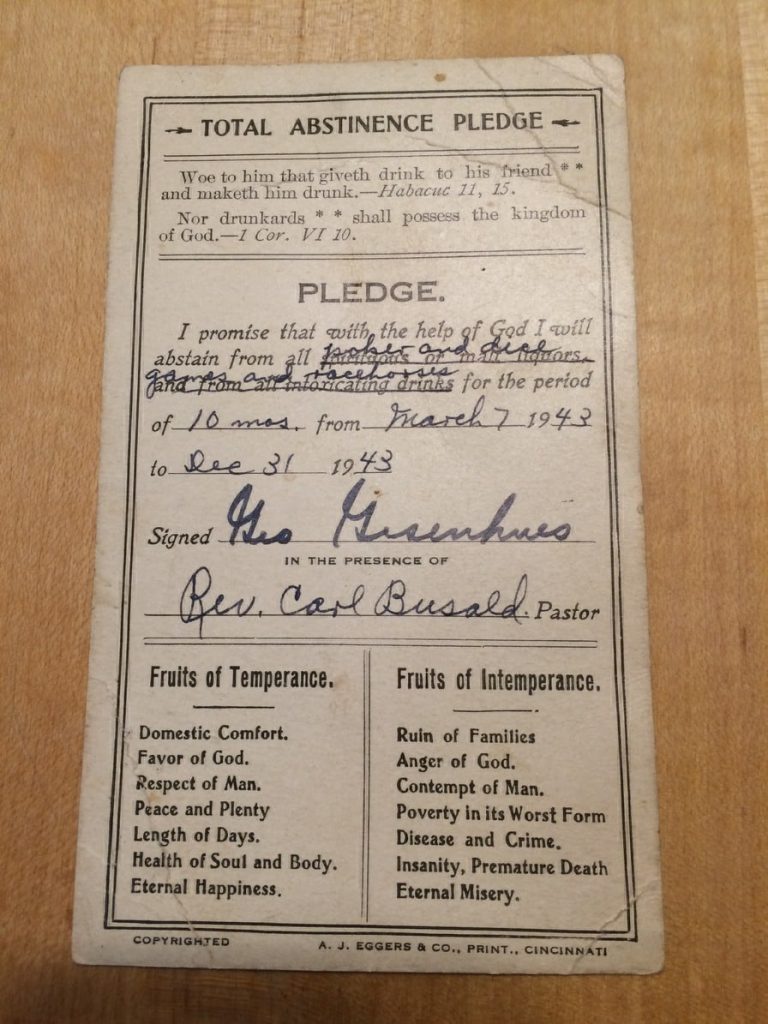 TOTAL ABSTINENCE PLEDGE
Woe to him that giveth drink to his friend * *
and maketh him drunk.—Habacuc 11, 15.
Nor drunkards * * shall possess the kingdom
of God.—1 Cor. VI 10.
PLEDGE.
I promise that with the help of God I will
poker and dice
abstain from all spirituous or malt liquors,
games and racehorses
and from all intoxicating drinks for the period
of 10 mos. from March 7 1943
to Dec 31 1943
Signed Geo Gisenhues
IN THE PRESENCE OF
Rev. Carl Busald. Pastor
Fruits of Temperance.
Domestic Comfort.
Favor of God.
Respect of Man.
Peace and Plenty
Length of Days.
Health of Soul and Body.
Eternal Happiness.
Fruits of Intemperance.
Ruin of Families
Anger of God.
Contempt of Man.
Poverty in its Worst Form
Disease and Crime.
Insanity, Premature Death
Eternal Misery.
COPYRIGHTED
A. J. EGGERS & CO., PRINT., CINCINNATI